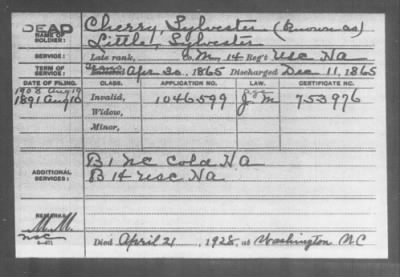 DEAD
NAME OF SOLDIER: Cherry, Sylvester (Known as)
Little, Sylvester
SERVICE: Late rank, Co M, 14 Reg't USC HA
TERM OF SERVICE: Enlisted Apr 30, 1865 Discharged Dec 11, 1865
DATE OF FILING. CLASS. APPLICATION NO. LAW. CERTIFICATE NO.
1908 Aug 19
1891 Aug 10 Invalid, 1046599 753976
Widow,
Minor,
ADDITIONAL SERVICES: B 1 NC Cold HA
B 14 USC HA
REMARKS:
M. M.
Died April 21, 1928, at Washington NC